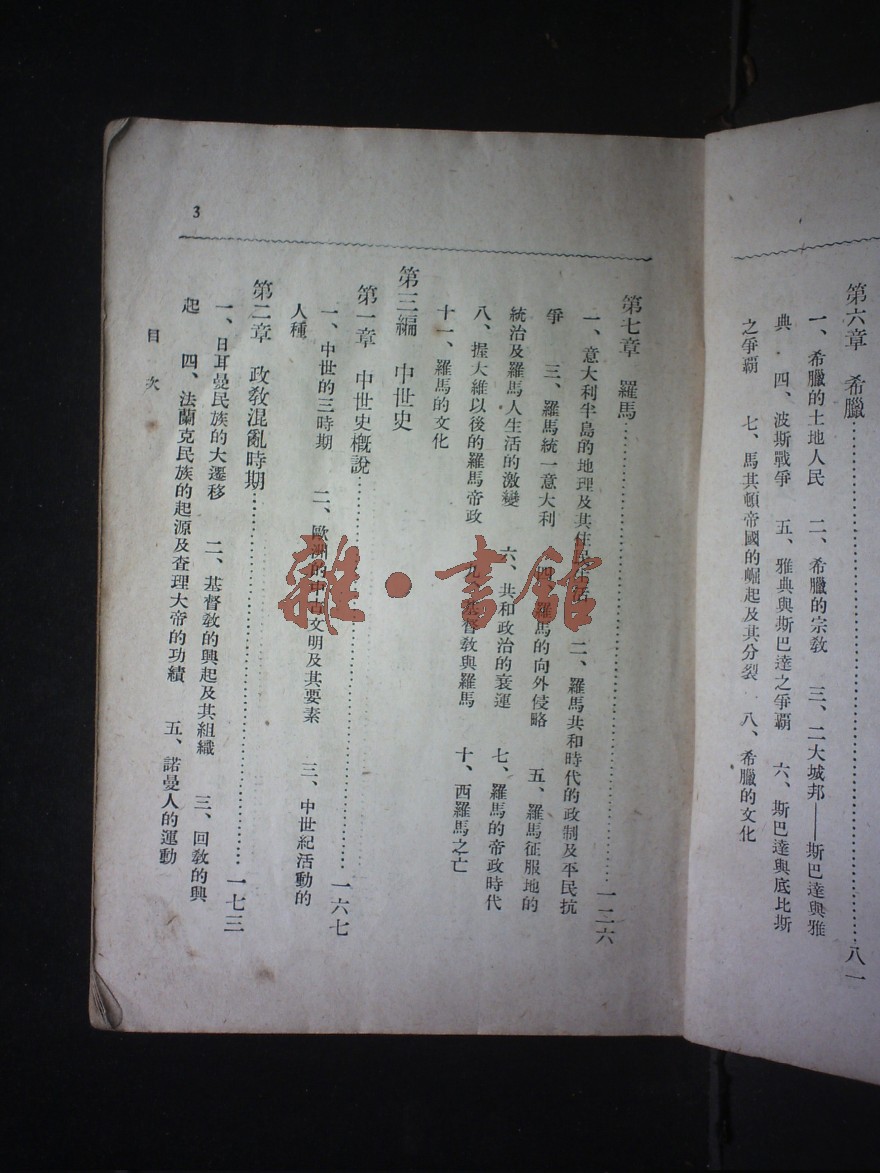 第六章　希臘……八一
一、希臘的土地人民　二、希臘的宗教　三、二大城邦——斯巴達與雅
典　四、波斯戰爭　五、雅典與斯巴達之爭霸　六、斯巴達與底比斯
之爭霸　七、馬其頓帝國的崛起及其分裂　八、希臘的文化
3
第七章　羅馬……一二六
一、意大利半島的地理及其住民生活　二、羅馬共和時代的政制及平民抗
爭　三、羅馬統一意大利　四、羅馬的向外侵略　五、羅馬征服地的
統治及羅馬人生活的激變　六、共和政治的衰運　七、羅馬的帝政時代
八、握大維以後的羅馬帝政　九、基督教與羅馬　十、西羅馬之亡
十一、羅馬的文化
第三編　中世史
第一章　中世史概說……一六七
一、中世的三時期　二、歐洲的中古文明及其要素　三、中世紀活動的
人種
第二章　政教混亂時期……一七三
一、日耳曼民族的大遷移　二、基督教的興起及其組織　三、回教的興
起　四、法蘭克民族的起源及查理大帝的功績　五、諾曼人的運動
目次
雜·書館